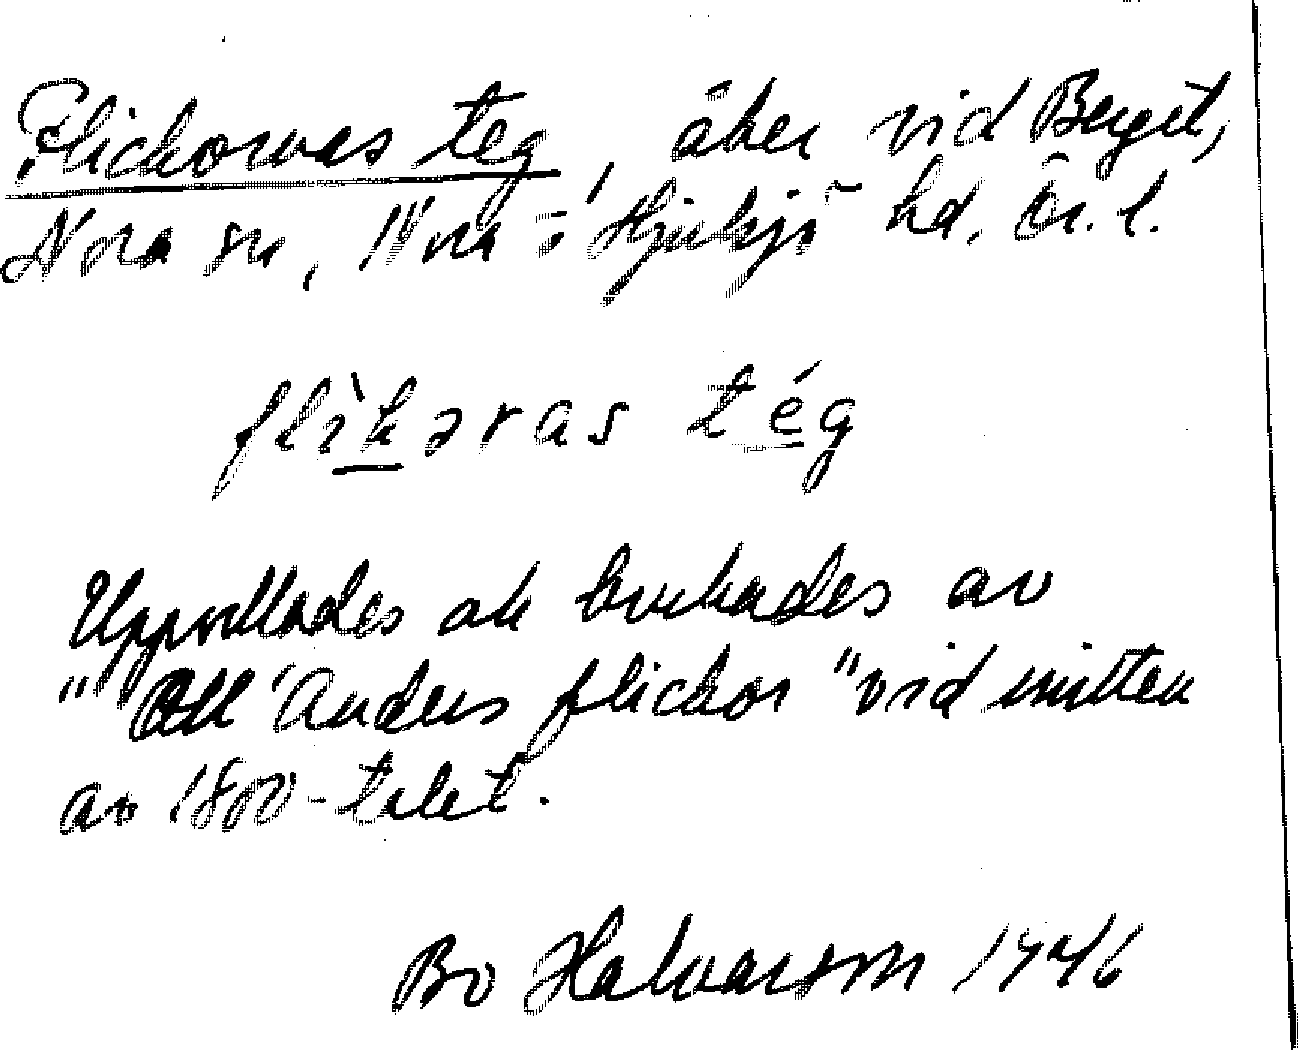 Flickornas teg, åker vid Berget,
Nora sn, Nora o. Hjulsjö hd, Ör. l.
flìkəras tég
Uppodlades och brukades av
"Oll Anders flickor" vid mitten
av 1800-talet.
Bo Halvarson 1946